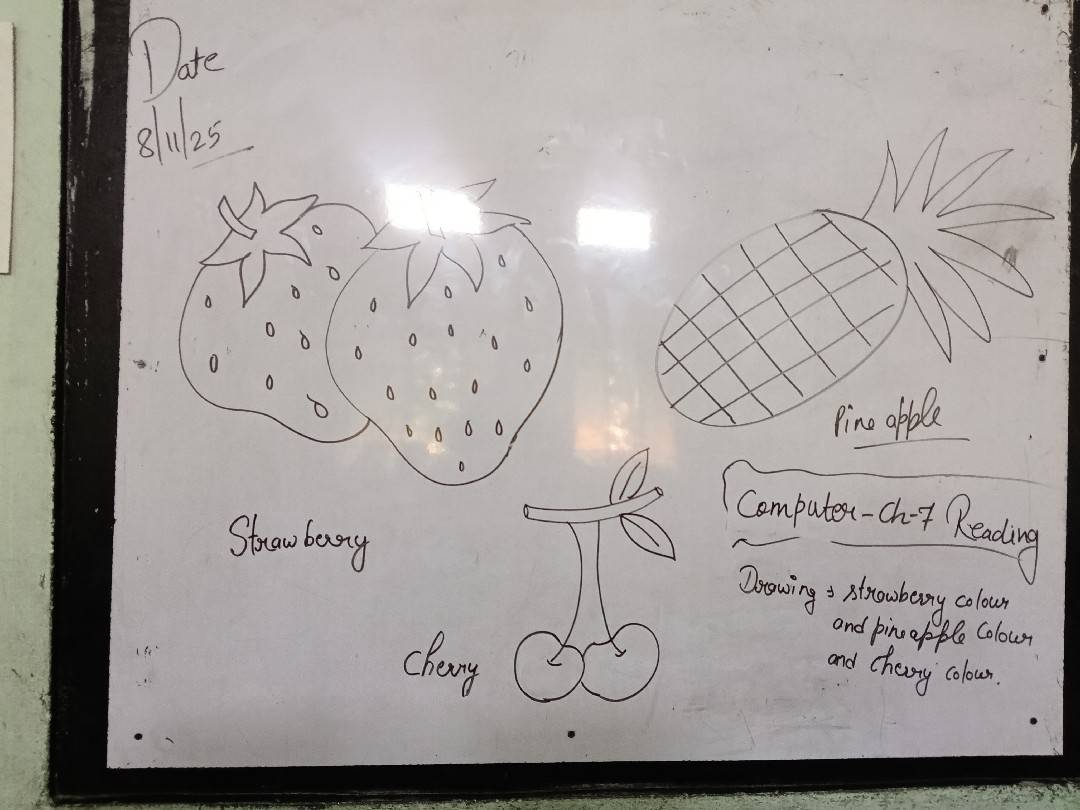 Date
8/11/25
Pineapple
Computer-Ch-7 Reading
Strawberry
Drawing : strawberry colour
and pineapple Colour
and cherry colour.
Cherry